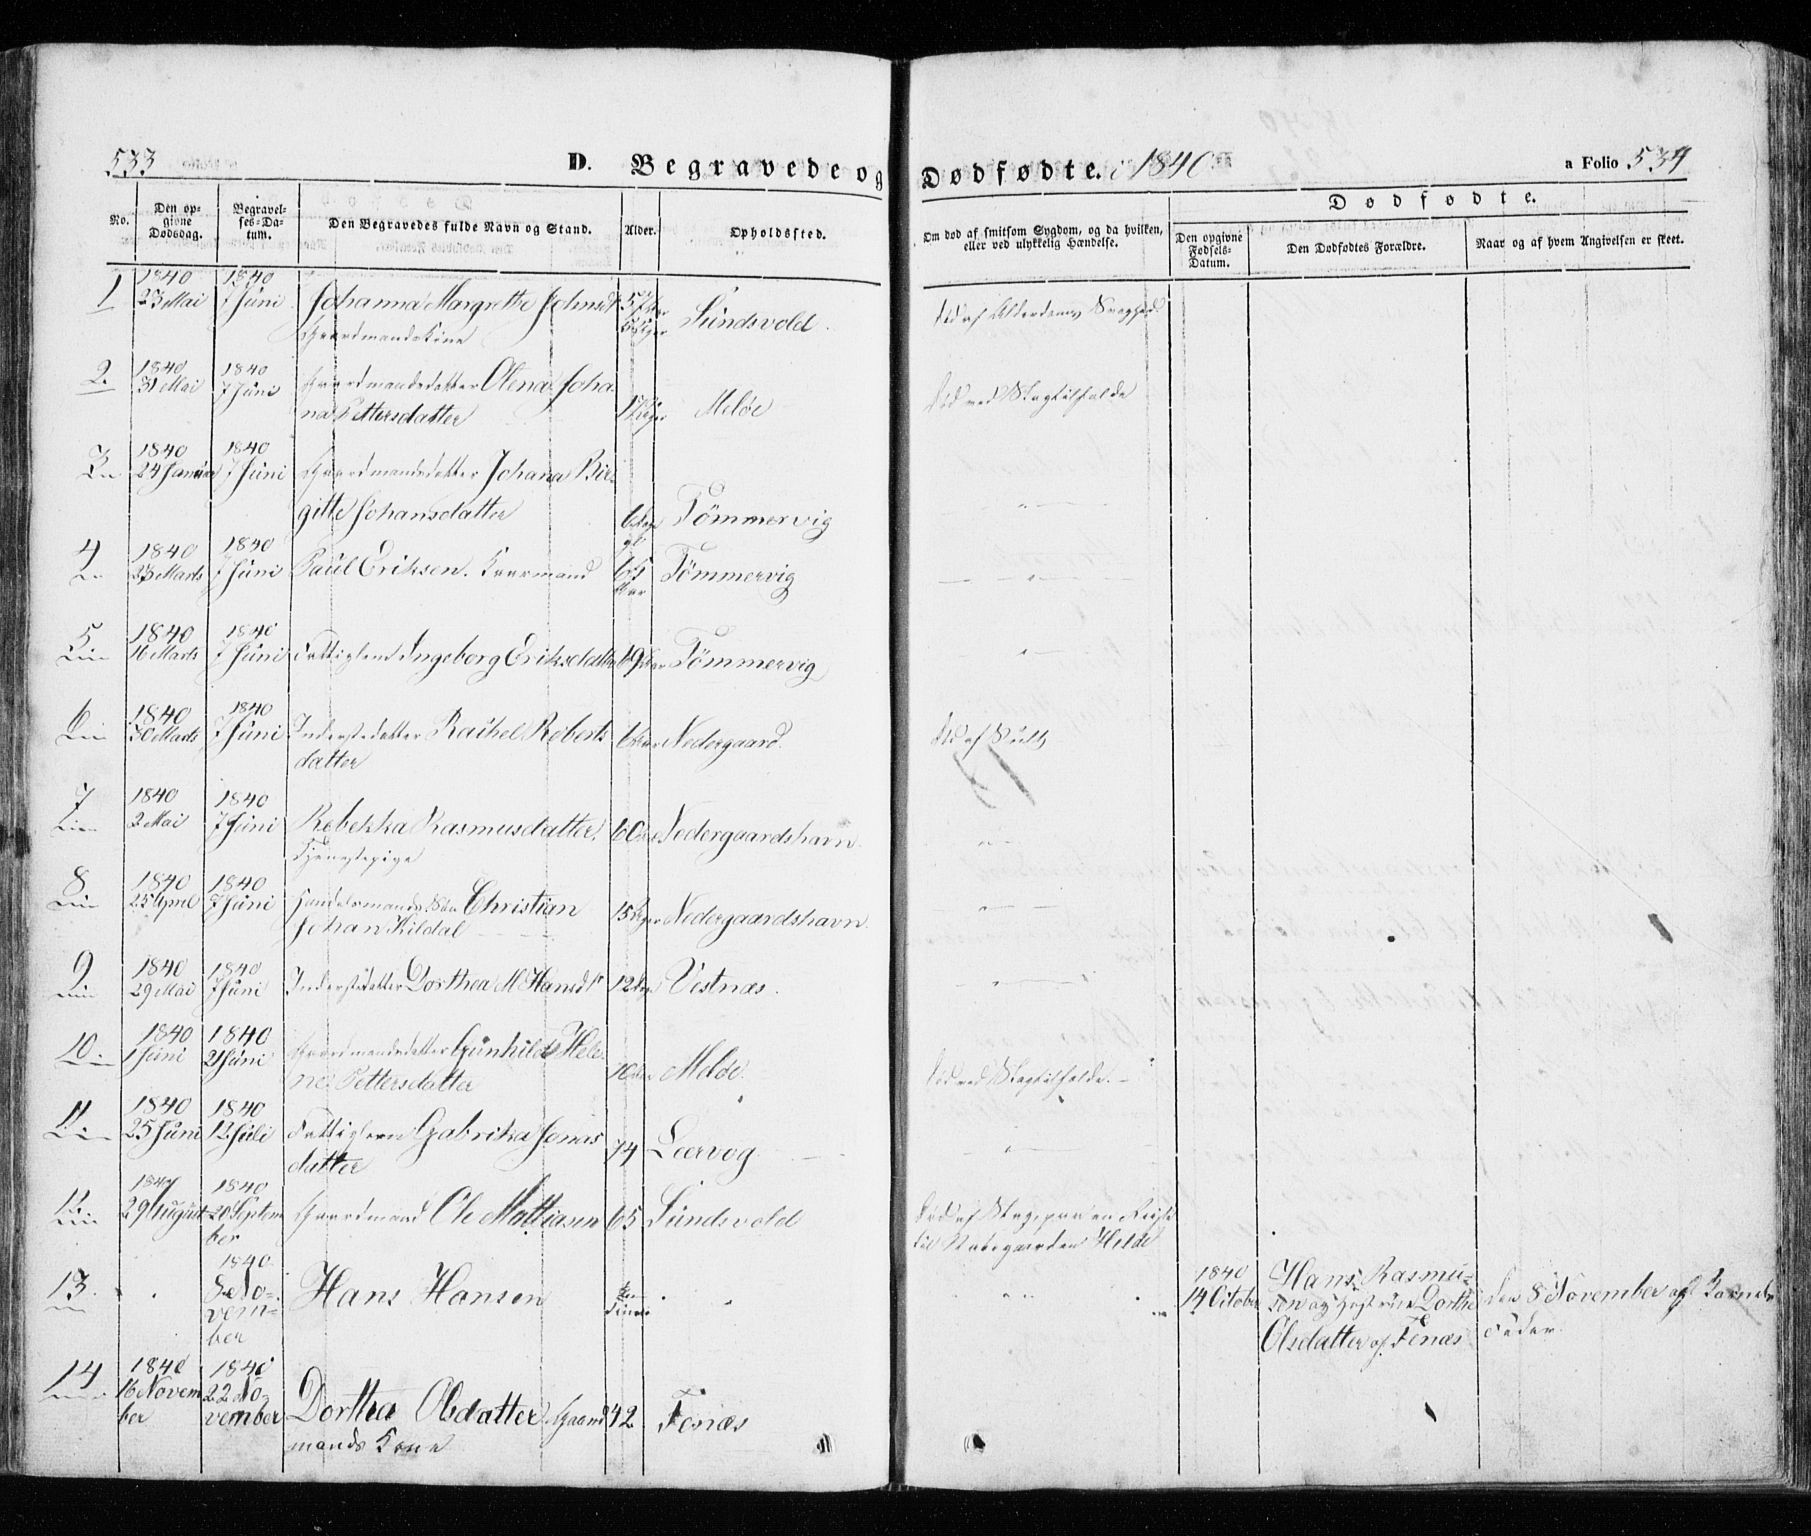 533
D. Begravede og Dødfødte. i 1840
a Folio 534
No.
Den opgivne Dødsdag.
Begravelses-Datum.
Den Begravedes fulde Navn og Stand.
Alder.
Opholdssted.
Om død af smitsom Sygdom, og da hvilken, eller ved ulykkelig Hændelse.
Dødfødte.
Den opgivne Fødsels-Datum.
Den Dødfødtes Forældre.
Naar og af hvem Angivelsen er skeet.
1 1840 23 Mai 1840 7 Juni Johanna Margrethe Johnsdt 57 Sundsvold.
Gaardmandskone
2. 1840 31 Mai 1840 7 Juni Gaardmandsdatter Olena Joha
na Pettersdatter Meløe
3 1840 24 Januar 1840 7 Juni Gaardmandsdatter Johana Bir-
gitte Johansdatter 6 Tömmervig
4 1840 Marts 1840 7 Juni Paul Eriksen. Kaarmand 65 Aar Tömmervig
5 1840 16 Marts 1840 7 Juni Fattiglem Ingeborg Eriksdatter 69 Aar Tömmervig
6 1840 30 Marts 1840 7 Juni Inderstedatter Rachel Roberts 6 Nedergaard.
datter
7 1840 2 Mai 1840 7 Juni Rebekka Rasmusdatter. 60 Nedergaardshavn.
Tjenestepige
8 1840 25 April 1840 7 Juni Handelsmands Søn Christian 15 Nedergaardshavn.
Johan Kildal
9 1840 29 Mai 1840 7 Juni Inderstedatter Dorthea M Hansdtr 12 Vestnæs.
10 1840 1 Juni 1840 21 Juni Gaardmandsdatter Gunhild Hele
ne Pettersdatter 10 Meløe.
død ved Slagtilfælde.
11 1840 25 Juni 1840 12 Juli Fattiglem Gabrika Jonas
datter 74 Leervog
12 1840 29 August 1840 20 Septem
ber Gaardmand Ole Mathiasen 65 Sundsvold
død af Slag paa en Reise
til Hilde
13. 1840 8 No-
vem-
ber Hans Hansen
1840 14 October
Hans Rasmu-
sen og Hustrue Dorthe
Olsdatter af Tenæs
den 8 November af Barnets
Fader.
14 1840 16 Novem
ber 1840 22 No-
vember Dorthea Olsdatter Gaard 42 Tenæs
mands Kone